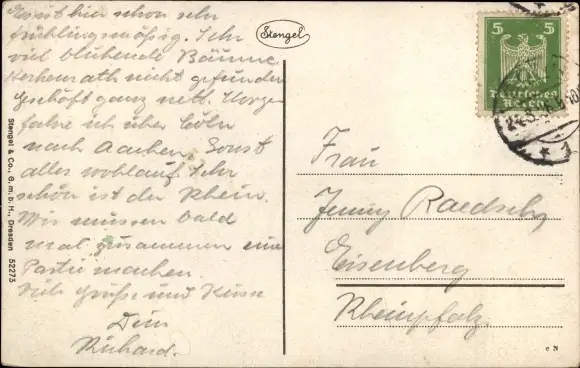 Es ist hier schon sehr
frühlingsmäßig. Sehr
viel blühende Bäume
nicht gefunden
Geschäft ganz nett. Morgen
fahre ich über Cöln
nach Aachen. Sonst
alles wohlauf. Sehr
schön ist der Rhein.
Wir müssen bald
mal zusammen eine
Partie machen
Viele Grüße und Küsse
Dein
Richard.
Stengel & Co., G. m. b. H., Dresden 52273
Stengel
5 5
Deutsches
Reich
Frau
Jenny
Eisenberg
Rheinpfalz.
c N